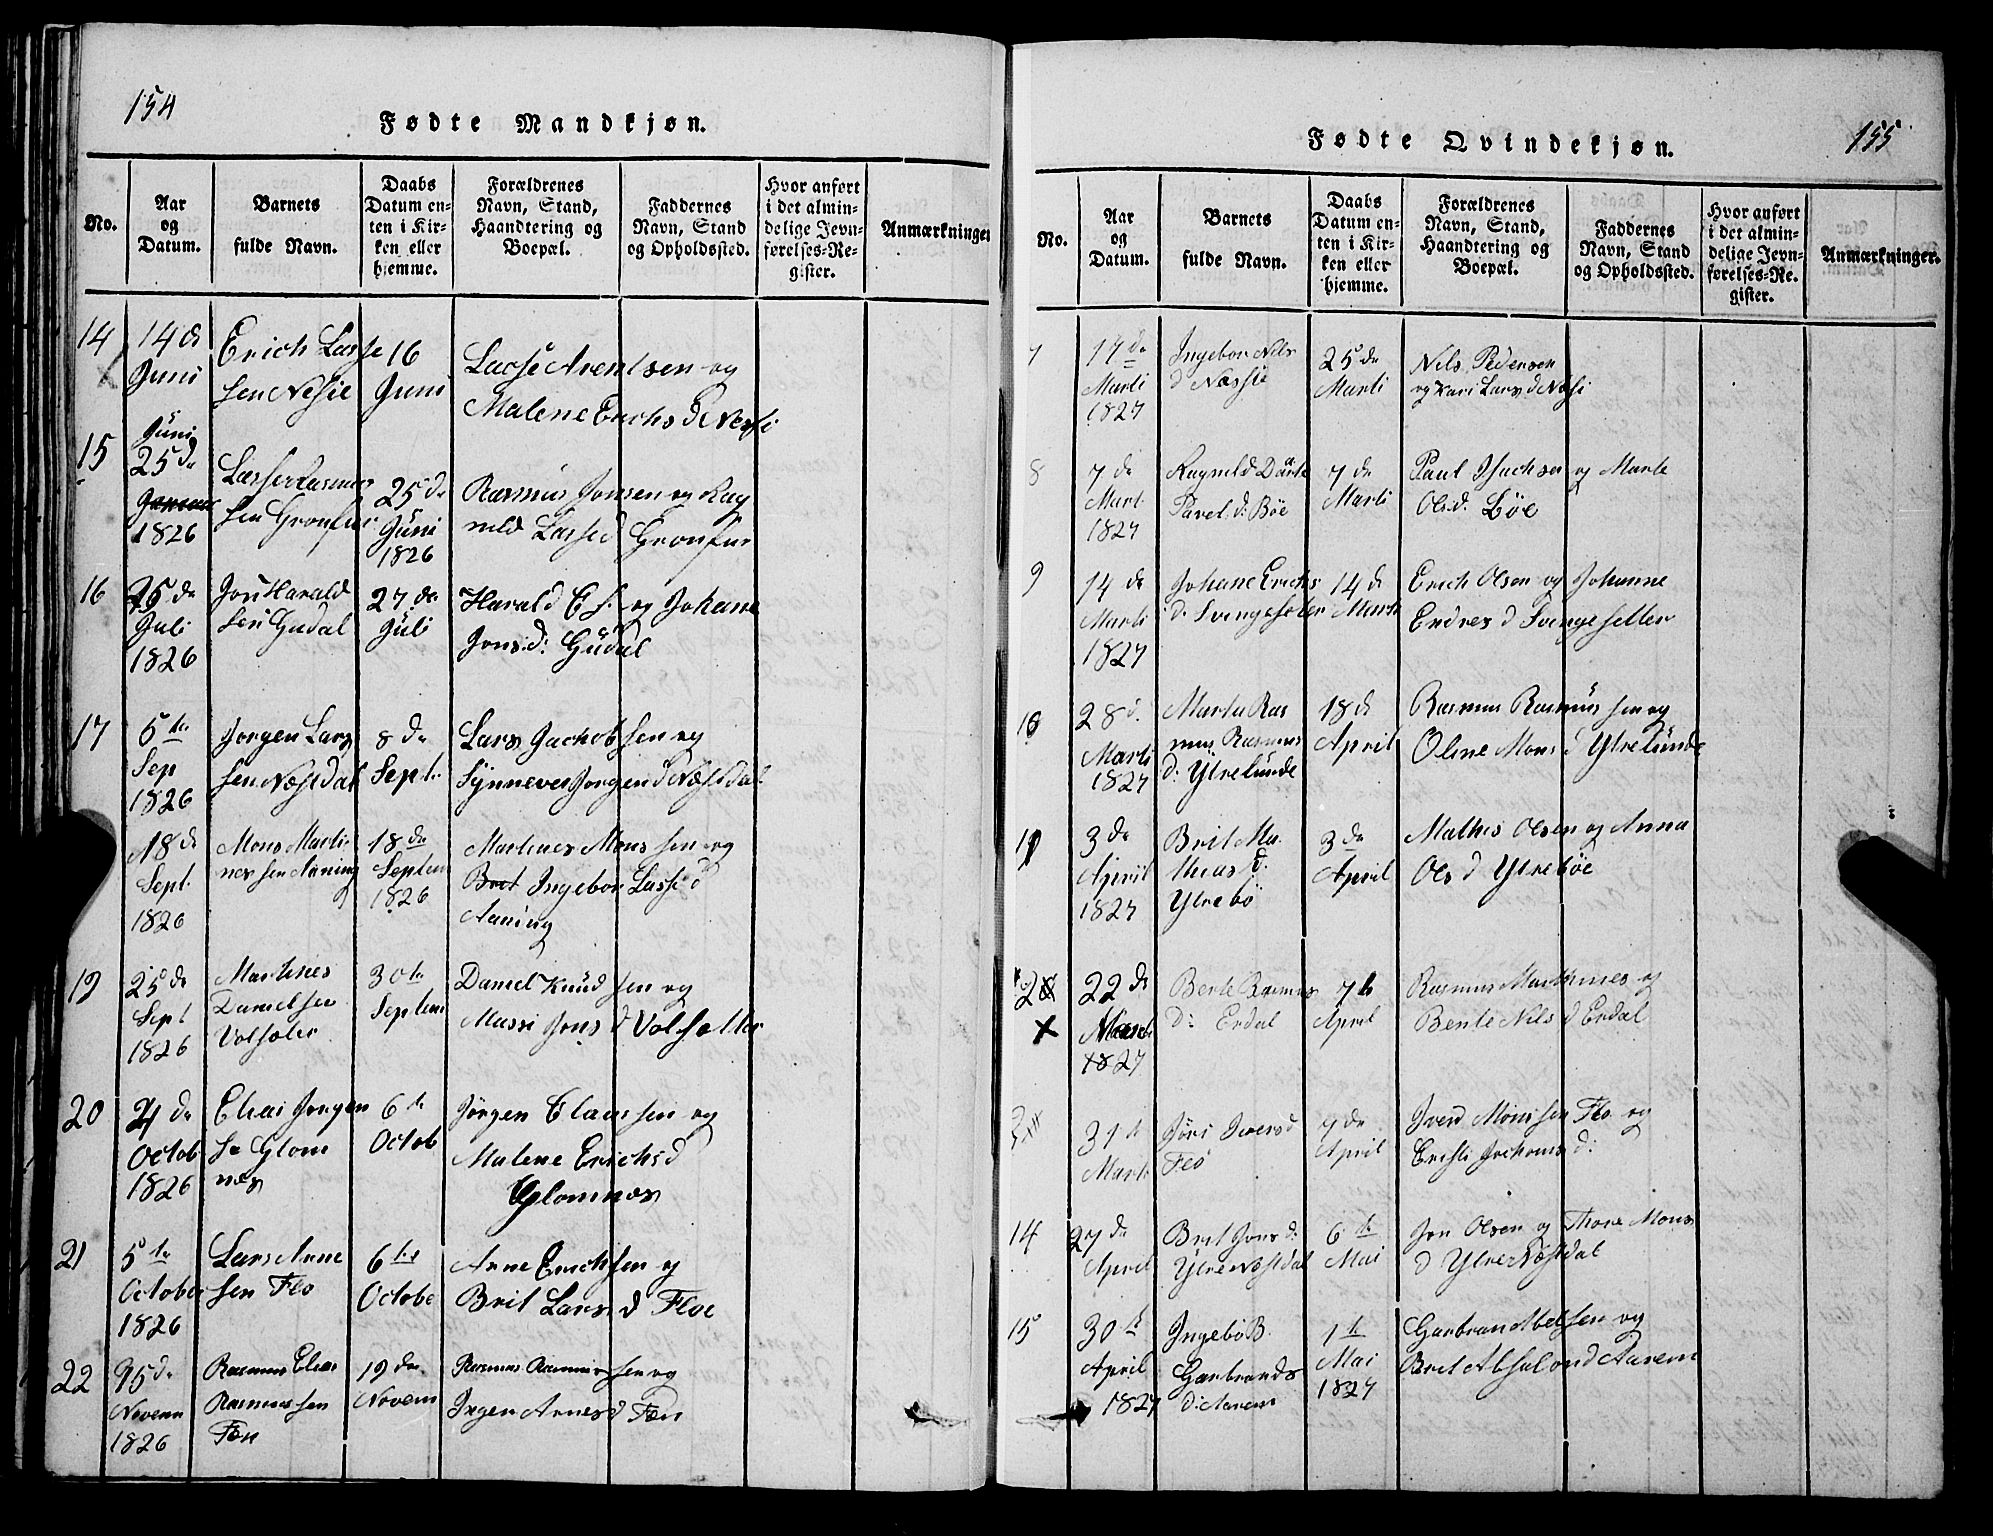 154
Fødte Mandkjøn.
No.
Aar
og
Datum.
Barnets
fulde Navn.
Daabs
Datum en-
ten i Kir-
ken eller
hjemme.
Forældrenes
Navn, Stand,
Haandtering og
Boepæl.
Faddernes
Navn, Stand
og Opholdssted.
Hvor anført
i det almin-
delige Jevn-
førelses-Re-
gister.
Anmærkninger
14
14 de
Juni
Erich Lasse
sen Nesie
16
Juni
Lasse Arentsen og
Malene Erichs d Nessi
15
Juni
25 de
1826
Lasse Rasmus
sen Gronfur
25 de
Juni
1826
Rasmus Jonsen og Rag
nild Lasse d Gronfur
16
25 de
Juli
1826
Jon Harald
sen Gudal
27 de
Juli
Harald E s. og Johane
Jons d: Gudal
17
5 te
Sep
1826
Jorgen Lars
sen Næstdal
8 de
Sept.
Lars Jachob sen og
Synneve Jorgen d Næstdal
18 de
Sept.
1826
Mons Marti
nes sen Aaning
18 de
Septem
1826
Martines Mons sen og
Brit Ingebor Lasse d
Aaning
19
25 de
Sept
1826
Martines
Danielsen
Volsæter
30 te
Septem
Daniel Knud sen og
Massi Jons d Volsætter
20
4 de
Octob
1826
Elias Jorgen
se Glom
nes
6 te
Octob
Jørgen Claus sen og
Malene Erichs d
Glomnes
21
5 te
October
1826
Lars Arne
sen Flo
6 te
Octobe
Arne Erichsen og
Brit Lars d Floe
22
15 de
Novem
1826
Rasmus Elias
Rasmus sen
Fæn
19 de
Novem
Rasmus Rasmus sen og
Inger Arnes d Fæn
155
Fødte Qvindekjøn.
No.
Aar
og
Datum.
Barnets
fulde Navn.
Daabs
Datum en-
ten i Kir-
ken eller
hjemme.
Forældrenes
Navn, Stand,
Haandtering og
Boepæl.
Faddernes
Navn, Stand
og Opholdssted.
Hvor anført
i det almin-
delige Jevn-
førelses-Re-
gister.
Anmærkninger.
7
17 de
Marti
1827
Ingebor Nils
d Nassie
25 de
Marti
Nils Pedersen
og Kari Lars d Nesi
8
7 de
Mart
1827
Ragnild Dorte
Pavel d: Bøe
7 de
Marti
Paul Isachsen og Marte
Ols d: Bøe
9
14 de
Marti
1827
Johane Erichs
d: Svingesæter
14 de
Marti
Erich Olsen og Johanne
Endres d Svingesetter
10
28 d.
Marti
1827
Marta Ras
mus Rasmus
d: Ytrelunde
18 de
April
Rasmus Rasmus sen og
Oline Mons d Ytrelunde
11
3 de
April
1827
Brit Ma
thias d:
Ytrebø
3 de
April
Mathis Olsen og Anna
Ols d Ytrebøe
22 de
Marti
1827
Bente Rasmus
d: Erdal
7 te
April
Rasmus Marthines og
Bente Nils d Erdal
31 te
Marti
Jøri Ivers d
Flo
9 de
April
Iver Mons sen Flo og
Cristi Jochoms d:
14
27 de
April
Brit Jons d:
Ytre Næstdal
6 te
Mai
Jon Olsen og Thore Mons
d Ytre Næstdal
15
30 te
April
1827
Ingebo B.
Garbrands
d: Aarem
1 te
Mai
1827
Garbran Abelsen og
Brit Absalon d Aarem